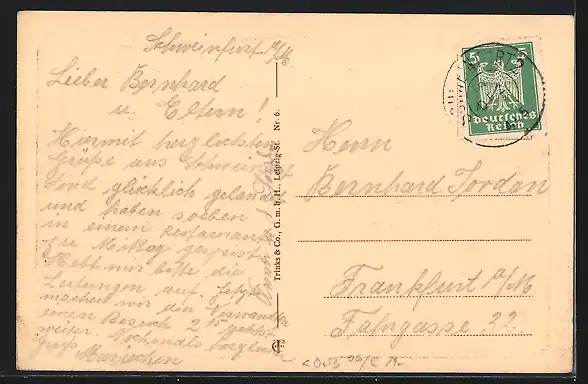 Schweinfurt a/M.
Lieber Bernhard
u. Eltern!
Hiermit herzlichsten
Grüße aus Schweinfurt
Sind glücklich gelandet
und haben soeben
in einem Restaurant
zu Mittag gespeist.
Hebt uns bitte die
Zeitungen auf. Jetzt
machen wir den Verwandten
einen Besuch
weiter. Nochmals herzlichen
Gruß
Trinks & Co., G. m. b. H., Leipzig-St. Nr. 6.
5 5
Deutsches
Reich
Herrn
Bernhard Jordan
Frankfurt a/M
Fahrgasse 22.